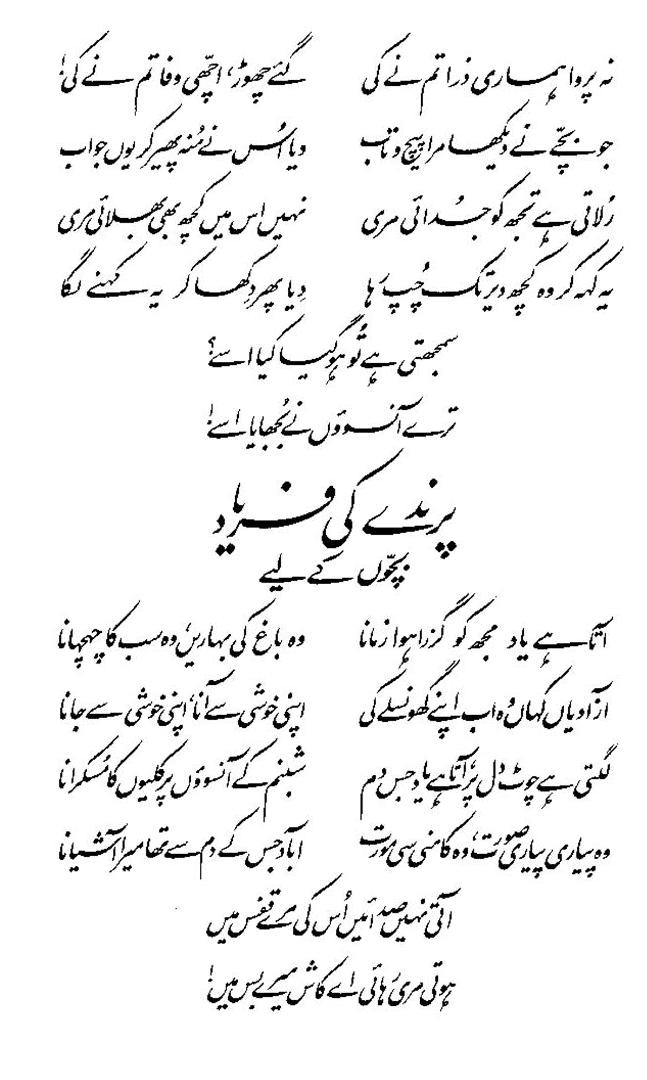 نہ پروا ہماری ذرا تم نے کی گئے چھوڑ، اچھّی وفا تم نے کی!
جو بچّے نے دیکھا مرا پیچ و تاب دیا اُس نے مُنہ پھیر کر یوں جواب
رُلاتی ہے تجھ کو جُدائی مری نہیں اس میں کچھ بھی بھلائی مری
یہ کہہ کر وہ کچھ دیر تک چُپ رہا دِیا پھر دِکھا کر یہ کہنے لگا
سمجھتی ہے تُو ہو گیا کیا اسے؟
ترے آنسوؤں نے بُجھایا اسے!
پرندے کی فریاد
بچّوں کے لیے
آتا ہے یاد مجھ کو گزرا ہوا زمانا وہ باغ کی بہاریں، وہ سب کا چہچہانا
آزادیاں کہاں وہ اب اپنے گھونسلے کی اپنی خوشی سے آنا، اپنی خوشی سے جانا
لگتی ہے چوٹ دل پر، آتا ہے یاد جس دم شبنم کے آنسوؤں پر کلیوں کا مُسکرانا
وہ پیاری پیاری صورت، وہ کامنی سی مورت آباد جس کے دم سے تھا میرا آشیانا
آتی نہیں صدائیں اُس کی مرے قفس میں
ہوتی مری رہائی اے کاش میرے بس میں!